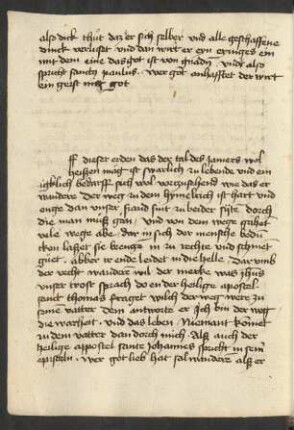 also dick thut daz er sich selber und alle geschaffene
dinck verluset und dan wirt er eyn eyniges eyn
mit dem eine das got ist von gnaden und also
spricht sanctus paulus wer got anhafftet der wirt
ein geist mit got
Uff dieser erden das der tal des jamers wol
heissen mag ist swarlich zu lebende und ein
iglich bedarff sich wol vorzusehend wie das er
wandere der weg zu dem hymelrich ist hart und
enge dan unser fiand sint zu beider syte dorch
die man muß gan und von dem wege gahet
vile wege abe dar in sich der mensche bedu
cken lasset sie brenge in zu rechte und
abber ir ende leidet in die helle Dar umb
der recht wandere wil der mercke was jhus
unser trost sprach do en der heilige apostel
sanct thomas fraget wilch der weg were zu
sime vatter dem antworte er Ich bin der weg
die warheit und das leben Niemant kommet
zu dem vatter dan dorch mich Als auch der
heilige appostel sante Johannes spricht in sein
episteln Wer got lieb hat sal wandern als er